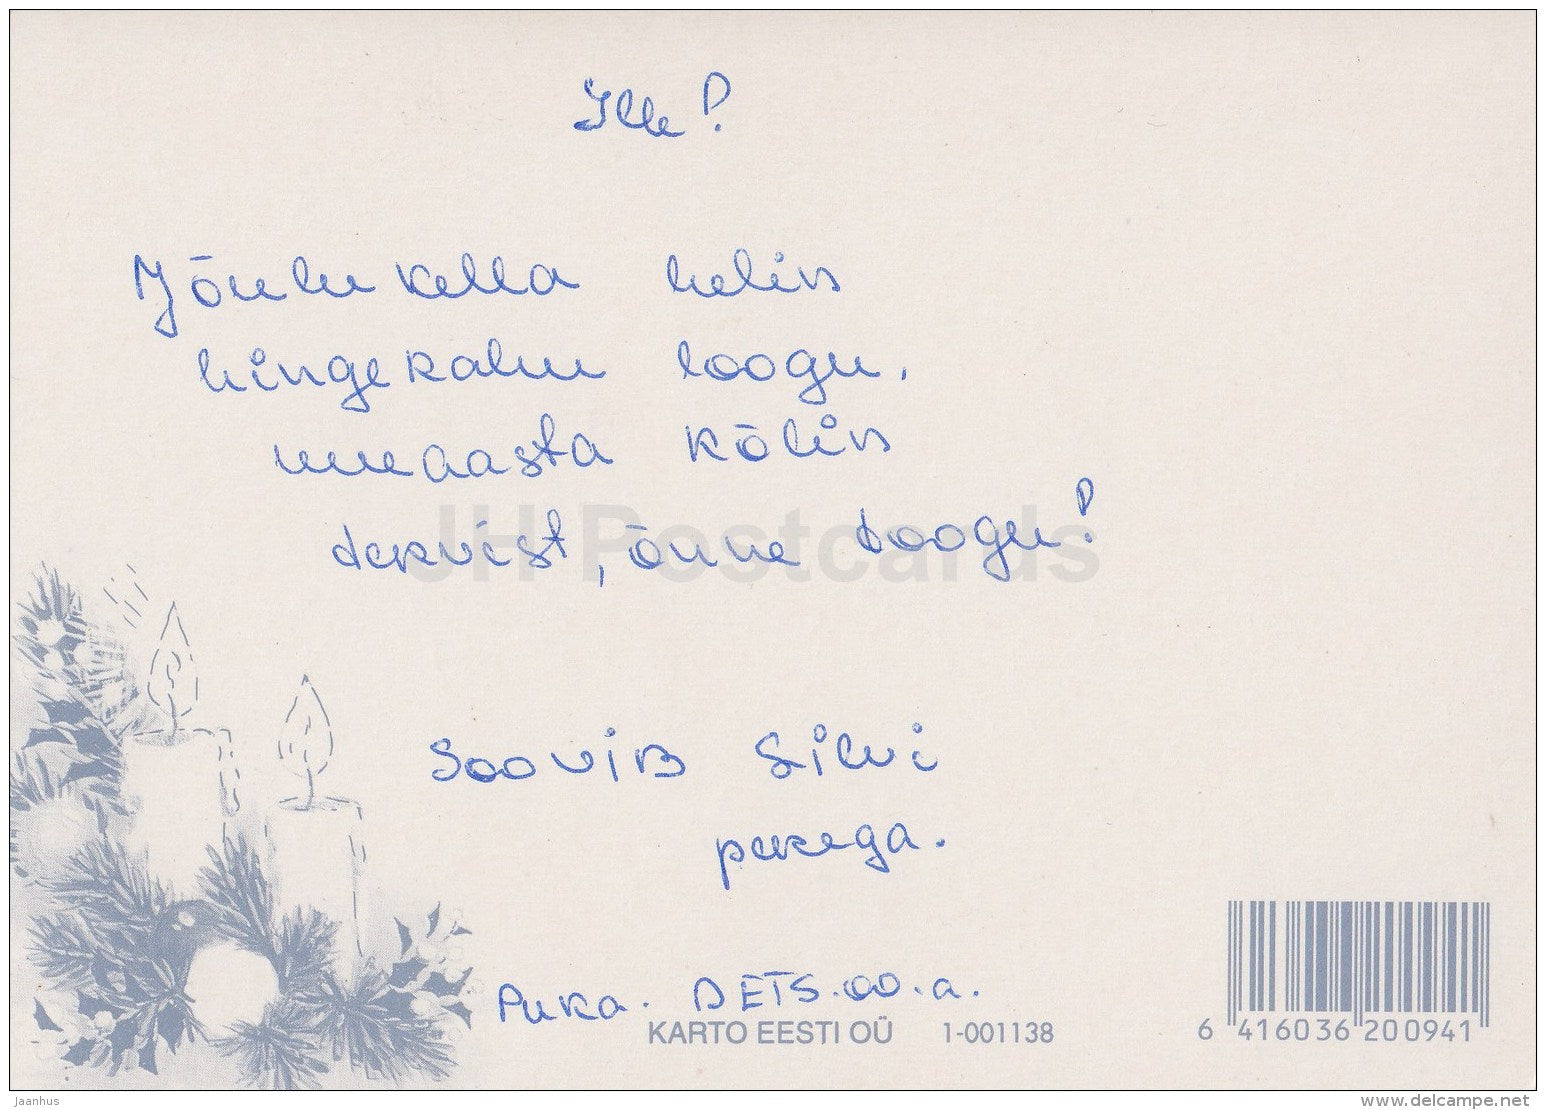 Ille!
Jõulukella helin
hingerahu loogu,
uueaasta kõlin
tervist, õnne toogu!
JH Postcards
Soovib Silvi
perega.
Puka. DETS. 00. a.
KARTO EESTI OÜ 1-001138
6 416036 200941
Jaanhus
www.delcampe.net